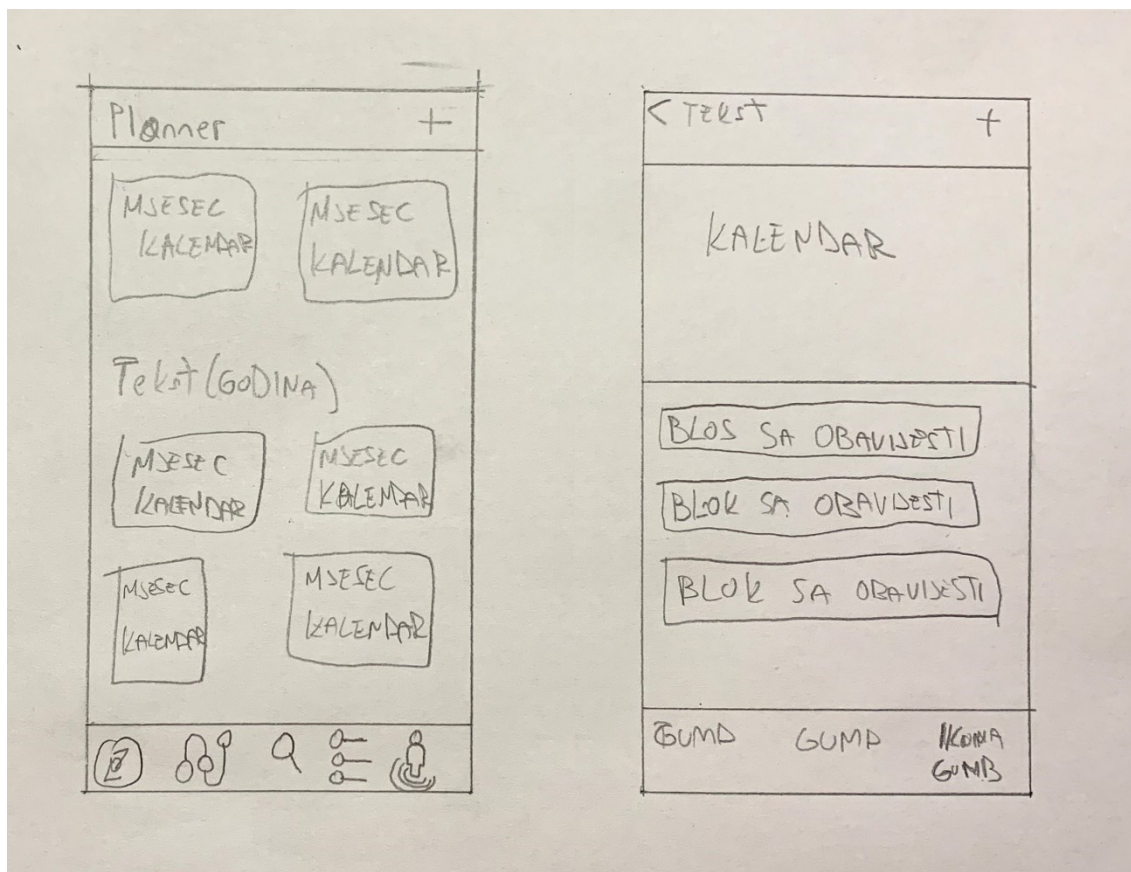 Planner +
MJESEC
KALENDAR
MJESEC
KALENDAR
Tekst (GODINA)
MJESEC
KALENDAR
MJESEC
KALENDAR
MJESEC
KALENDAR
MJESEC
KALENDAR
< TEKST +
KALENDAR
BLOS SA OBAVIJESTI
BLOK SA OBAVIJESTI
BLOK SA OBAVIJESTI
GUMB
GUMB
IKONA
GUMB